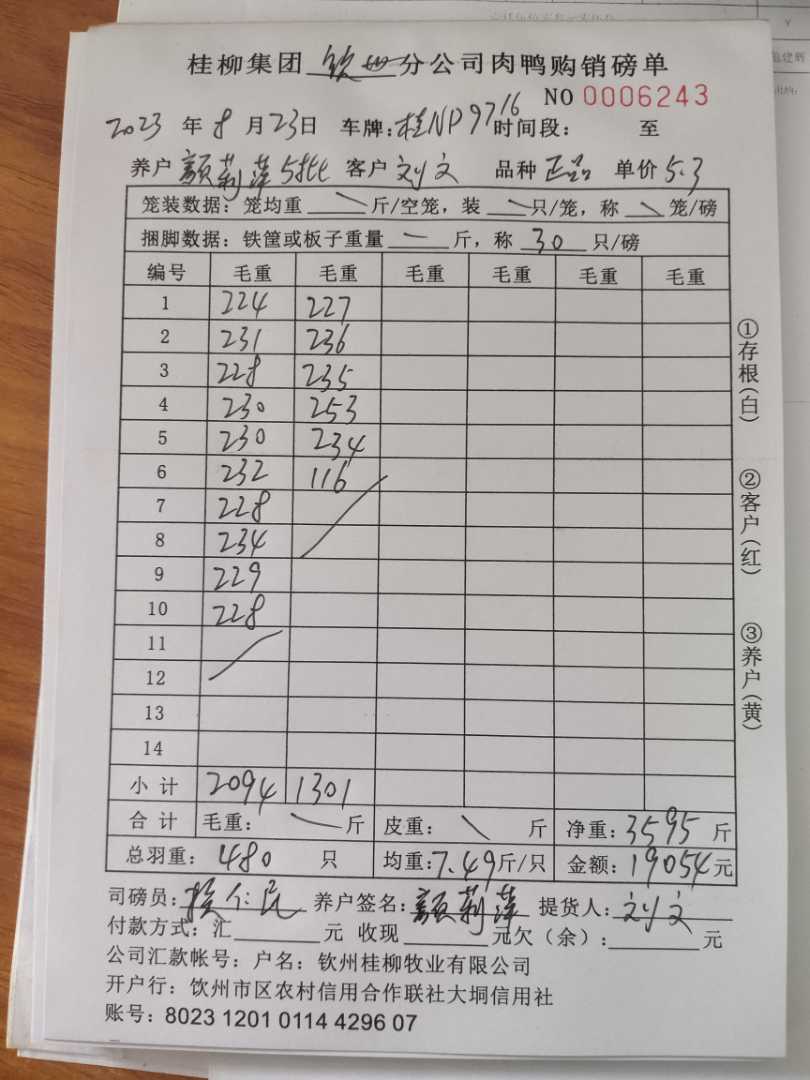 桂柳集团 钦州 分公司肉鸭购销磅单
NO 0006243
2023 年 8 月 23日 车牌:桂NP9716 时间段: 至
养户 颜莉萍 客户 刘文 品种 正品 单价 5.3
笼装数据:笼均重 \ 斤/空笼,装 \ 只/笼,称 \ 笼/磅
捆脚数据:铁筐或板子重量 — 斤,称 30 只/磅
编号 毛重 毛重 毛重 毛重 毛重 毛重
1 224 227
2 231 236
3 228 235
4 230 253
5 230 234
6 232 116
7 228
8 234
9 229
10 228
11
12
13
14
小计 2094 1301
合计 毛重: \ 斤 皮重: \ 斤 净重:3595 斤
总羽重: 480 只 均重:7.49斤/只 金额:19054元
司磅员: 养户签名:颜莉萍 提货人:刘文
付款方式:汇 元 收现 元欠(余): 元
公司汇款帐号:户名:钦州桂柳牧业有限公司
开户行:饮州市区农村信用合作联社大垌信用社
账号:8023 1201 0114 4296 07
①存根(白)
②客户(红)
③养户(黄)